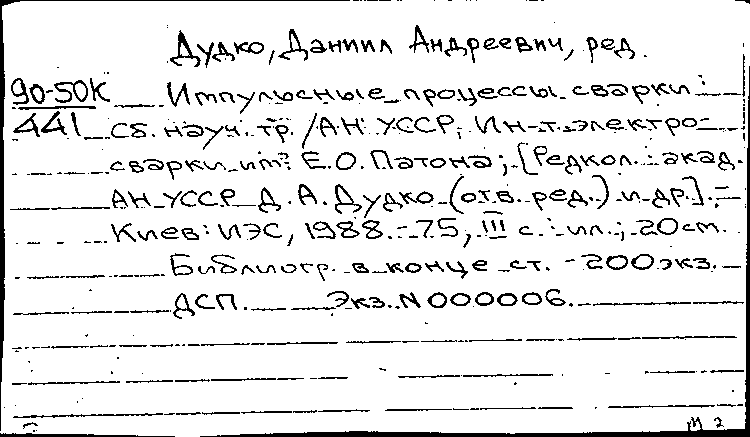 Дудко, Даниил Андреевич, ред.
90-50К Импульсные процессы сварки :
441 Сб. науч. тр. / АН УССР, Ин-т электро-
сварки им. Е.О. Патона ; [Редкол.: акад.
АН УССР Д. А. Дудко (отв. ред.) и др.]. -
Киев : ИЭС, 1988. - 75, III с. : ил. ; 20 см.
Библиогр. в конце ст. - 200 экз.
ДСП. Экз. N 000006.
м 2